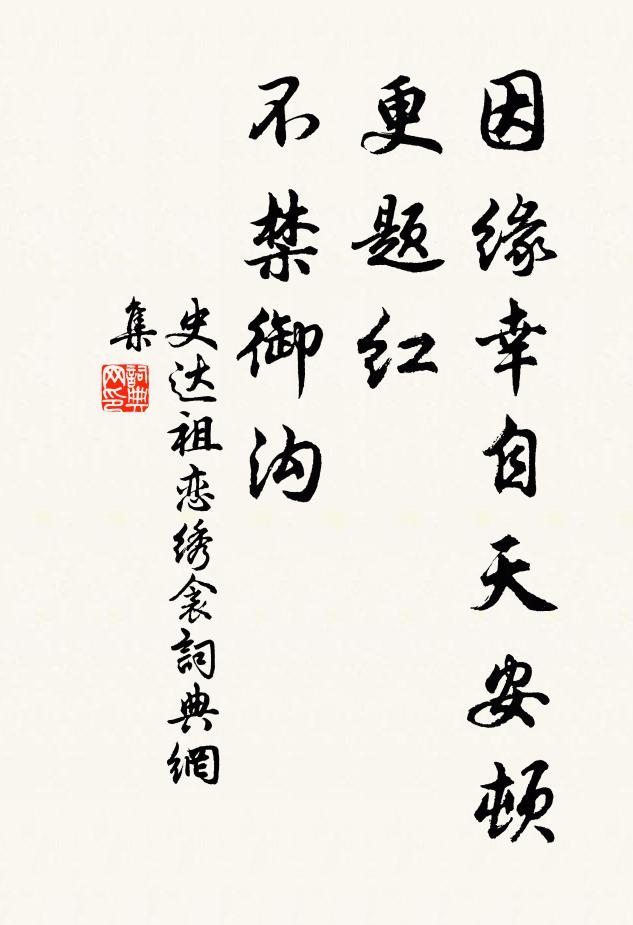 因缘幸自天安顿
更题红
不禁御沟
史达祖恋绣衾詞典網
集
詞典网印